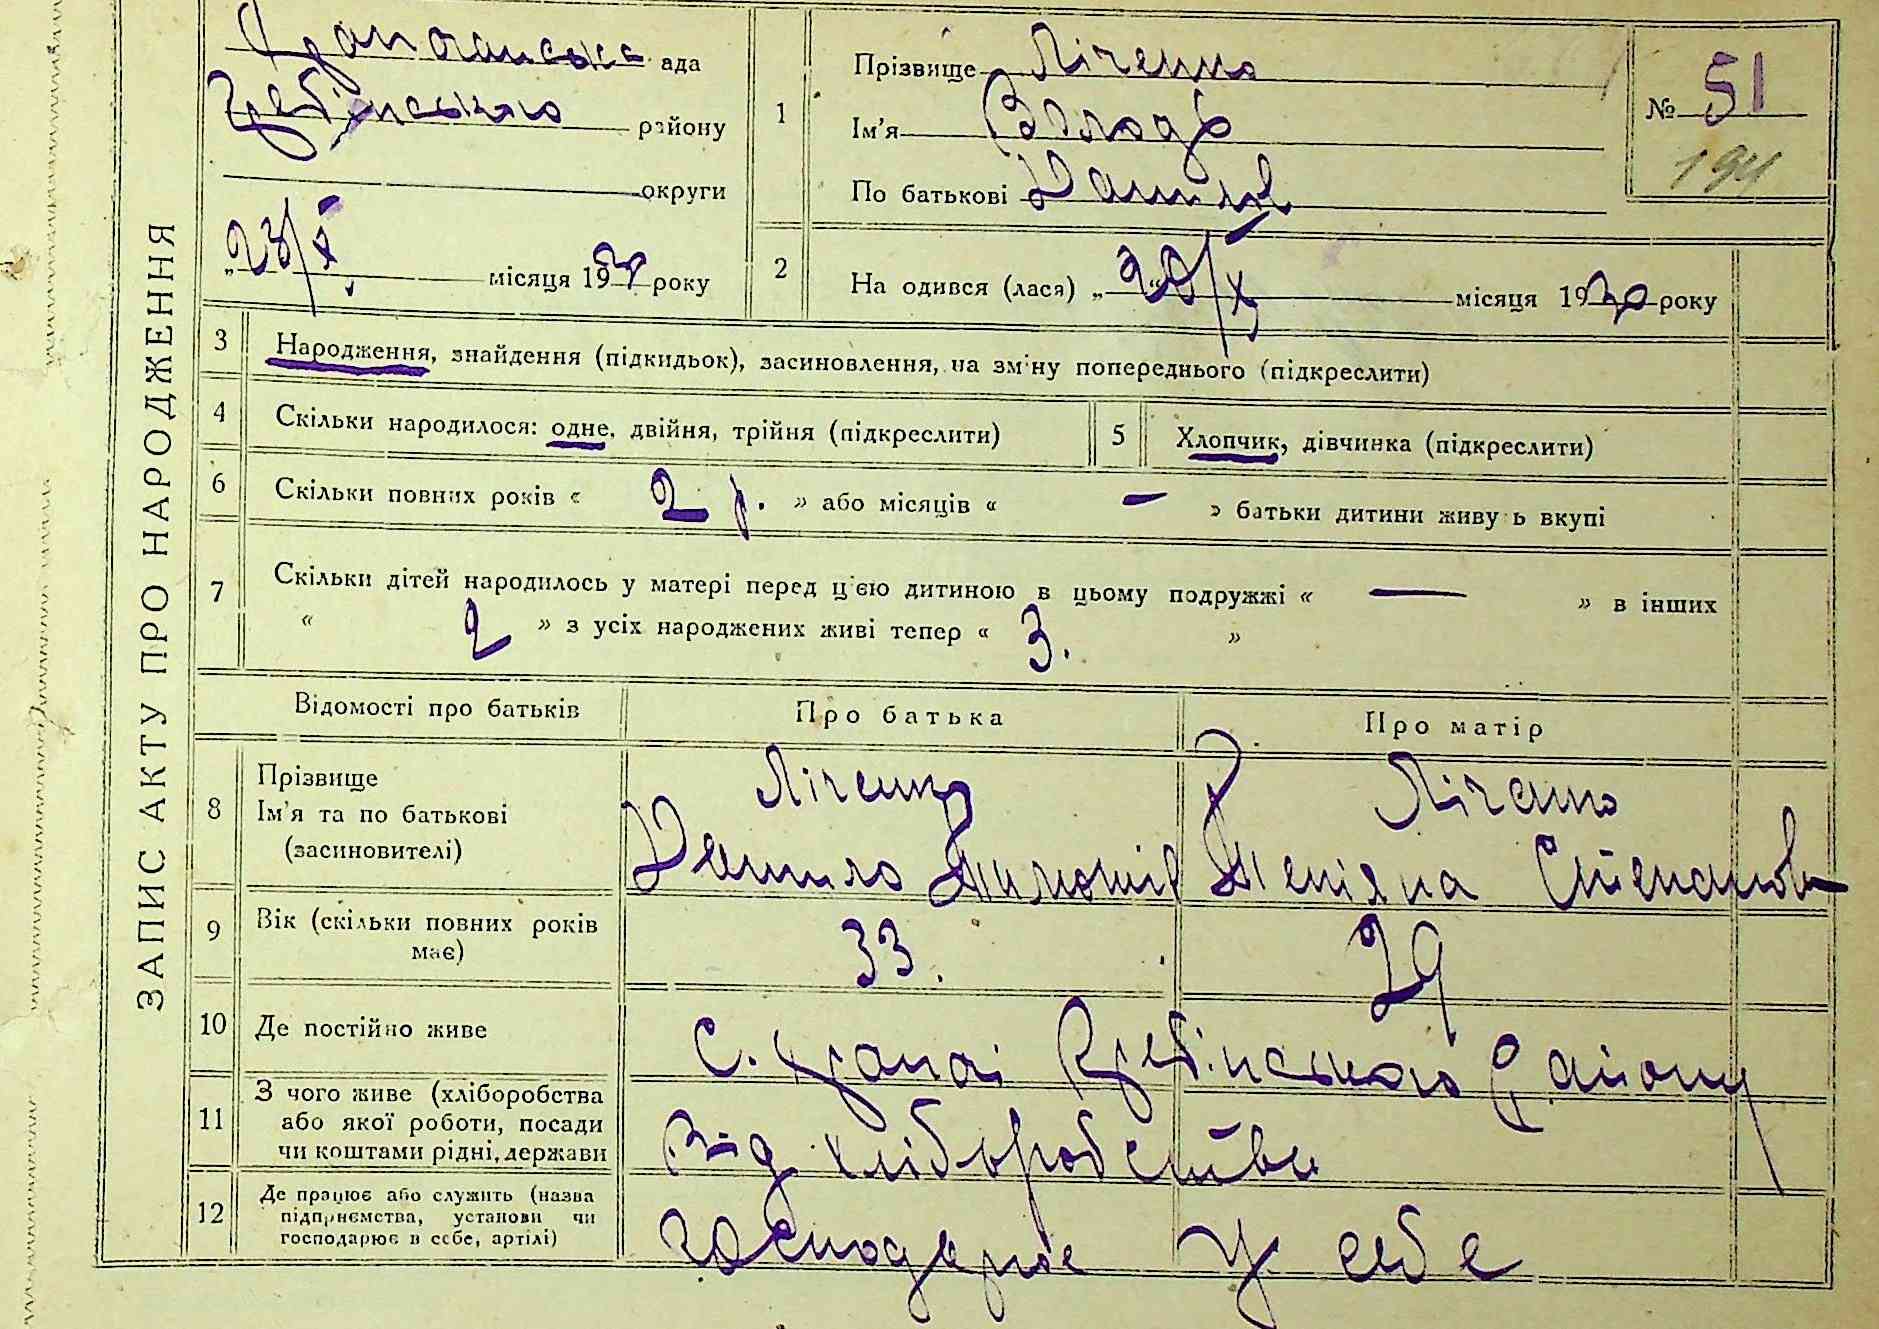 ЗАПИС АКТУ ПРО НАРОДЖЕННЯ
ада
району
округи
23/X місяця 1930 року
1
Прізвище Ліченко
Ім'я Володь
По батькові Данилів
№ 51
194
2
На одився (лася) „ 22/X місяця 1930 року
3 Народження, знайдення (підкидьок), засиновлення, на зміну попереднього (підкреслити)
4 Скільки народилося: одне, двійня, трійня (підкреслити)
5 Хлопчик, дівчинка (підкреслити)
6 Скільки повних років « 2 р. » або місяців « — » батьки дитини живу ь вкупі
7 Скільки дітей народилось у матері перед ц'єю дитиною в цьому подружжі « — » в інших
« 2 » з усіх народжених живі тепер « 3. »
Відомості про батьків Про батька Про матір
8 Прізвище Ліченко Ліченко
Ім'я та по батькові Данило Тимошів Тетяна Степанов
(засиновителі)
9 Вік (скільки повних років має) 33. 29
10 Де постійно живе с. району
11 З чого живе (хліборобства або якої роботи, посади чи коштами рідні, держави від хліборобства
12 Де працює або служить (назва підприємства, установи чи господарює в себе, артілі) господарює у себе